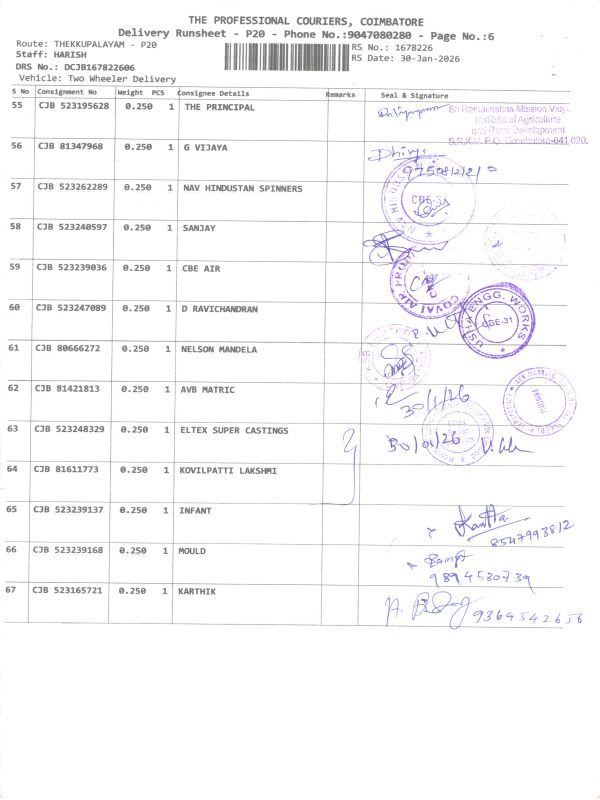 THE PROFESSIONAL COURIERS, COIMBATORE
Delivery Runsheet - P20 - Phone No.:9047080280 - Page No.:6
Route: THEKKUPALAYAM - P20
RS No.: 1678226
Staff: HARISH
RS Date: 30-Jan-2026
DRS No.: DCJB167822606
Vehicle: Two Wheeler Delivery
S No Consignment No Weight PCS Consignee Details Remarks Seal & Signature
55 CJB 523195628 0.250 1 THE PRINCIPAL
Sri Ramakrishna Mission Vidy
Institute of Agriculture
and Rural Development
S.R.K.V. P.O. Coimbatore-641 020.
56 CJB 81347968 0.250 1 G VIJAYA
Dhivya
57 CJB 523262289 0.250 1 NAV HINDUSTAN SPINNERS
CBE-31
58 CJB 523240597 0.250 1 SANJAY
59 CJB 523239036 0.250 1 CBE AIR
COVAI AIR
60 CJB 523247089 0.250 1 D RAVICHANDRAN
USHA ENGG. WORKS
CBE-31
61 CJB 80666272 0.250 1 NELSON MANDELA
62 CJB 81421813 0.250 1 AVB MATRIC
30/1/26
PRINCIPAL
63 CJB 523248329 0.250 1 ELTEX SUPER CASTINGS
30/01/26
64 CJB 81611773 0.250 1 KOVILPATTI LAKSHMI
65 CJB 523239137 0.250 1 INFANT
Kavitha
8547993812
66 CJB 523239168 0.250 1 MOULD
9894530739
67 CJB 523165721 0.250 1 KARTHIK
9364542656